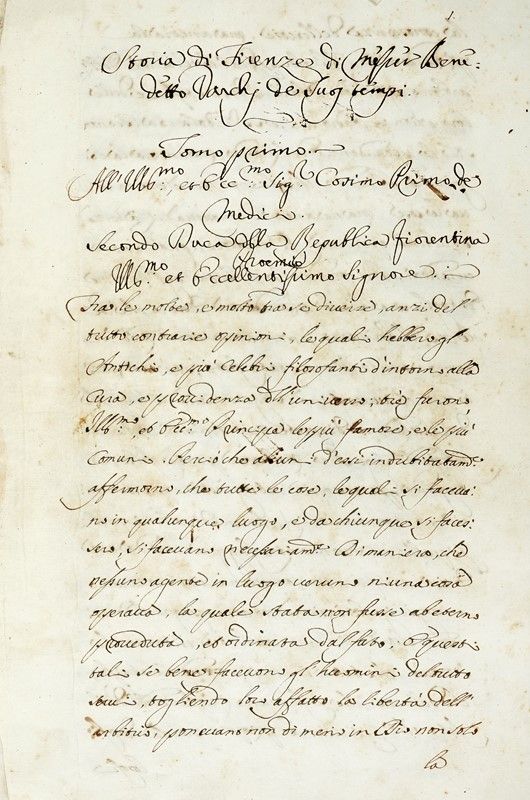 1
Storia di Firenze di Messer Bene-
detto Varchj de Suoj tempi.
Tomo primo.
All' Ill:mo, et Ecc:mo Sig:r Cosimo Primo de
Medici.
Secondo Duca della Republica Fiorentina
Proemio
Ill:mo et Eccellentissimo Signore.
Fra le molte, e molto tra se diverse, anzi del
tutto contrarie opinioni, le quali hebbero gl'
Antichi, e più celebri filosofanti d'intorno alla
cura, e providenza dell'universo, tre furono
Ill:mo, et Ecc:mo Principe le più famose, e le più
Comuni. Perciò che alcuni d'essi indubitatam:te
affermorno, che tutte le cose, le quali si faceva-
no in qualunque luogo, e da chiunque si faces-
sero, si facevano necessariam:te Di maniera, che
nessuno agente in luogo veruno niuna cosa
operava, la quale stata non fusse ab eterno
proveduta, et ordinata dal fato. E questi
tali se bene facevono gl'huomini del tutto
servi, togliendo loro affatto la libertà dell'
arbitrio, ponevano non di meno in Dio non solo
la